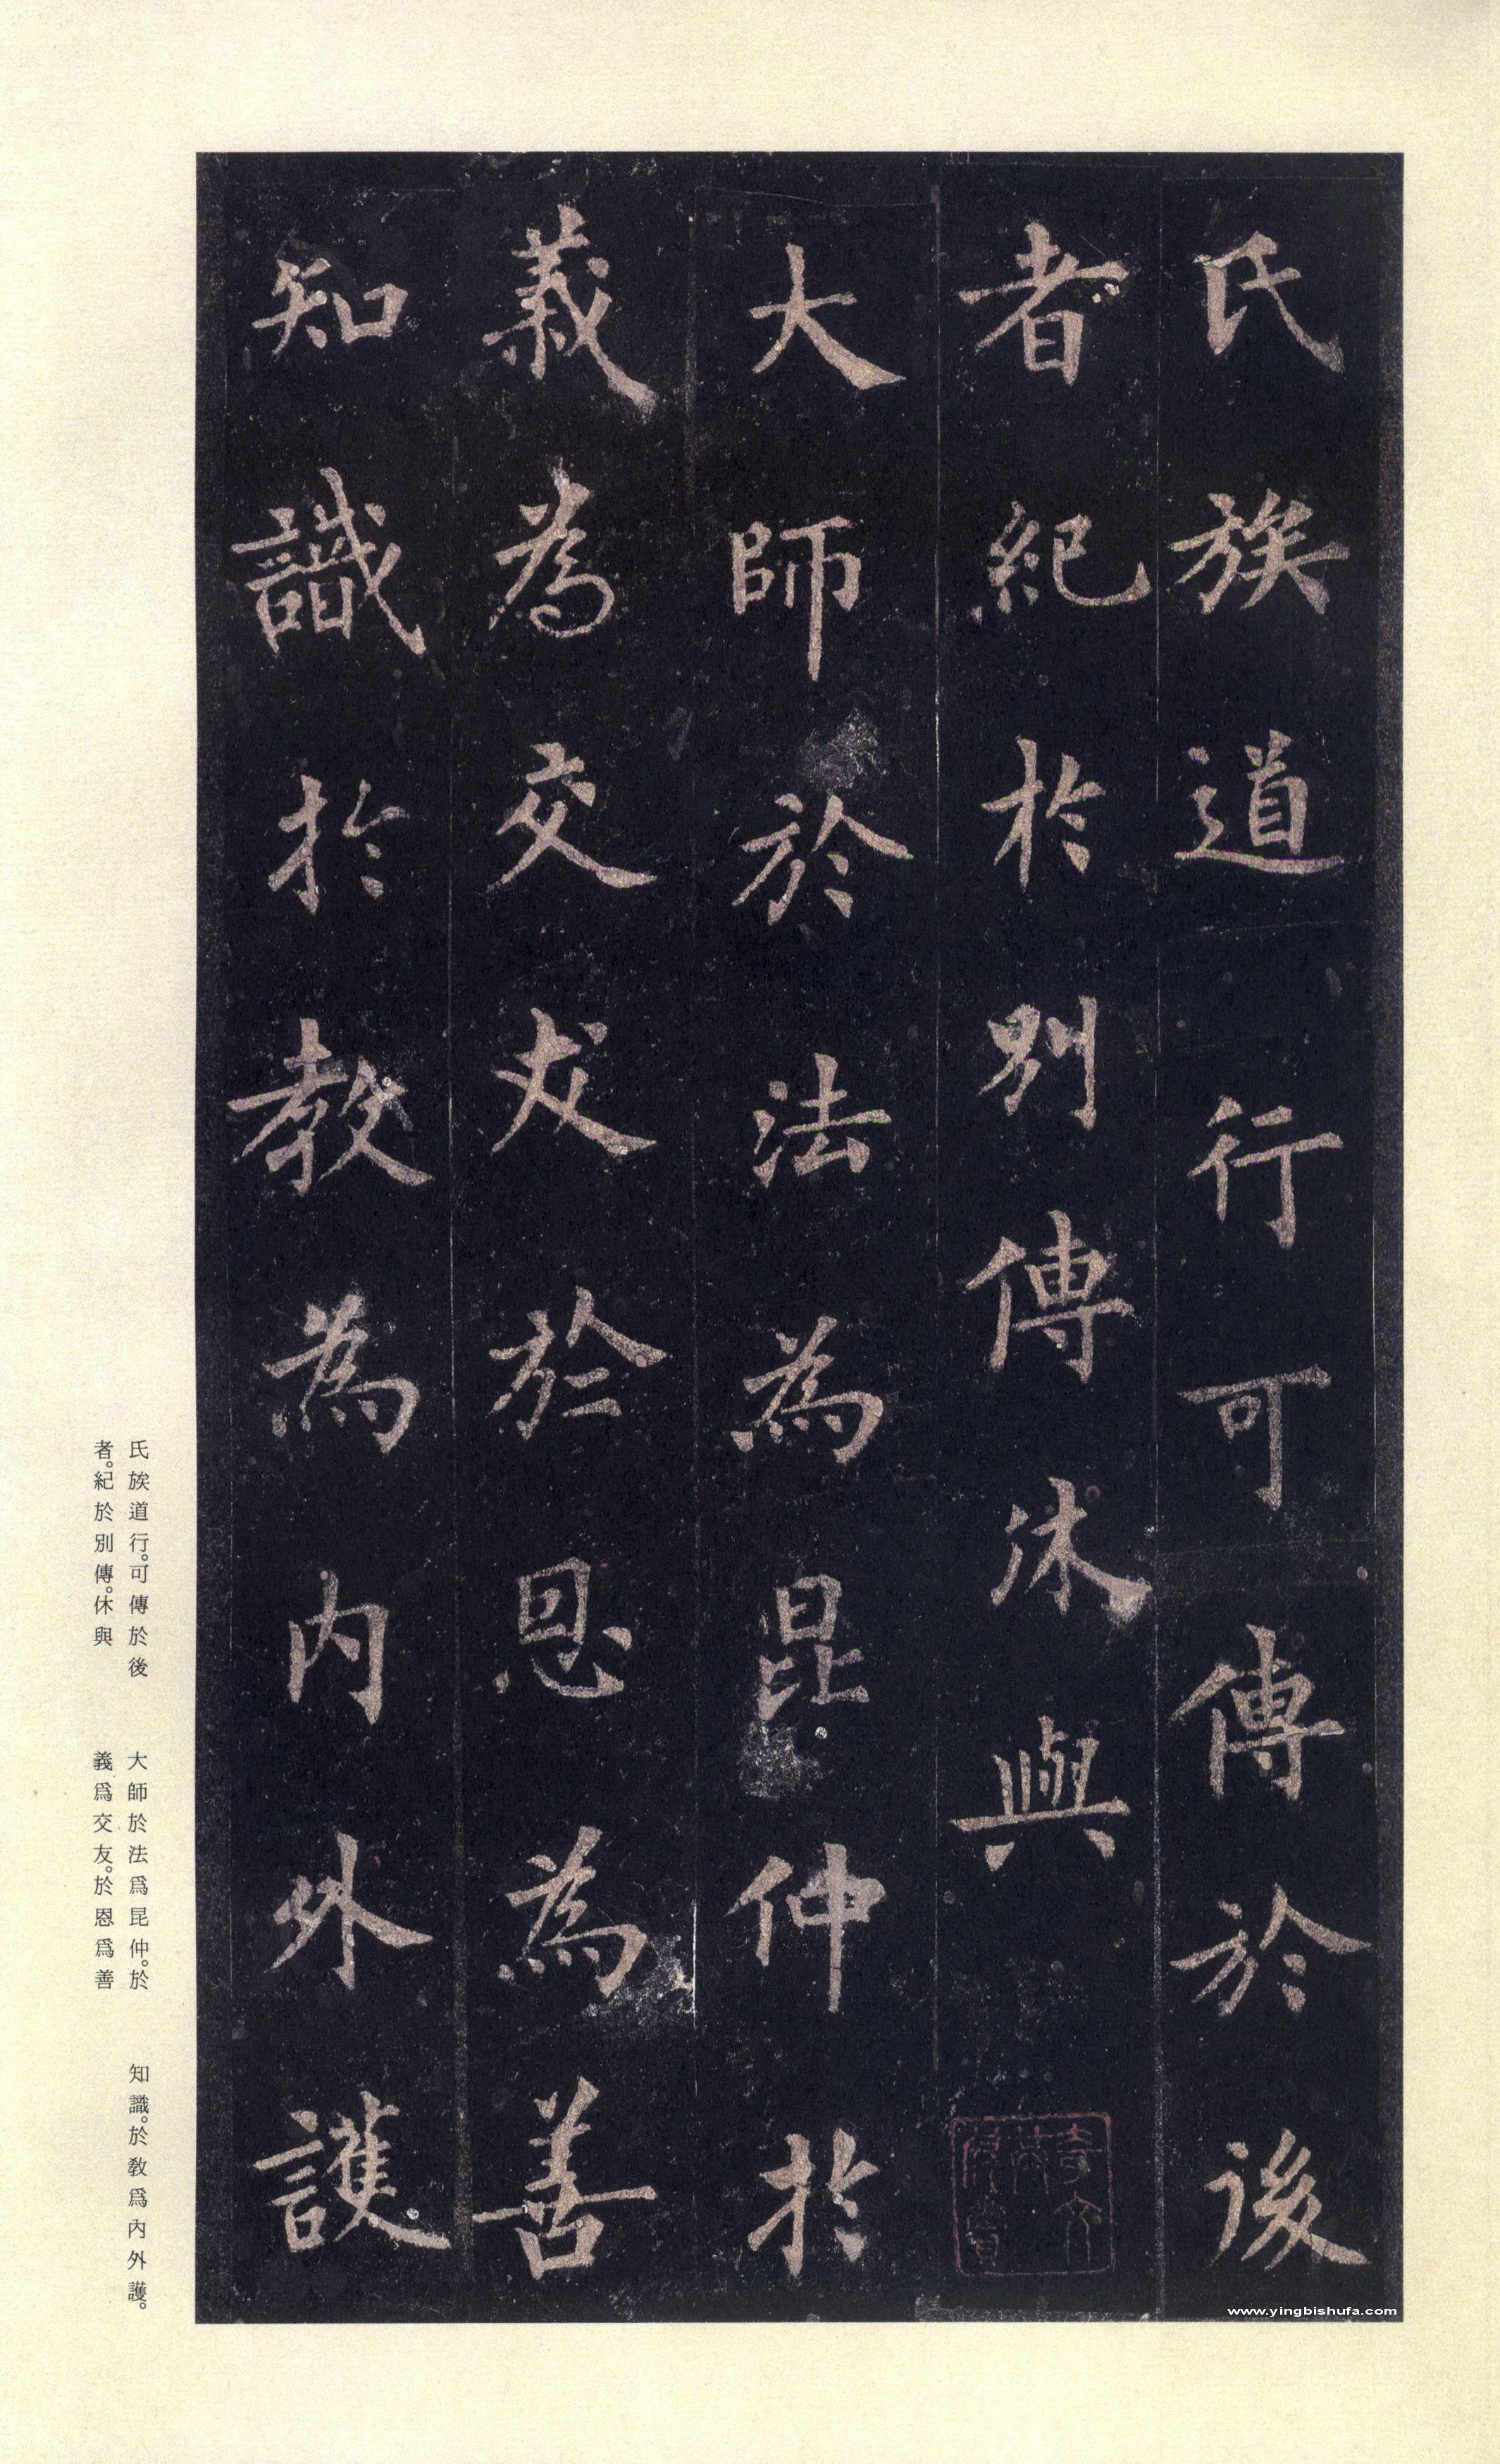 氏族道行可傳於後
者紀於別傳休與
大師於法為昆仲於
義為交友於恩為善
知識於教為內外護
氏族道行。可傳於後
者。紀於別傳。休與
大師於法爲昆仲。於
義爲交友。於恩爲善
知識。於教爲內外護。
www.yingbishufa.com